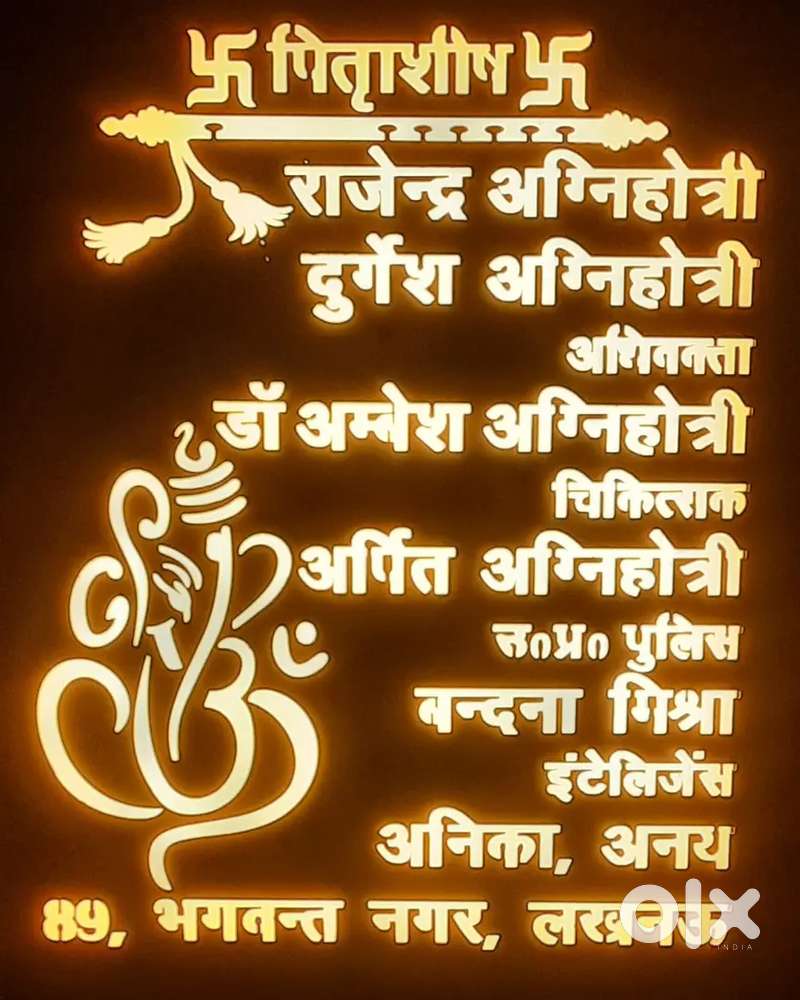 卐 पितृाशीष 卐
राजेन्द्र अग्निहोत्री
दुर्गेश अग्निहोत्री
अधिवक्ता
डॉ अम्बेश अग्निहोत्री
चिकित्सक
अर्पित अग्निहोत्री
उ०प्र० पुलिस
वन्दना मिश्रा
इंटेलिजेंस
अनिका, अनय
89, भगवन्त नगर, लखनऊ
olx
INDIA